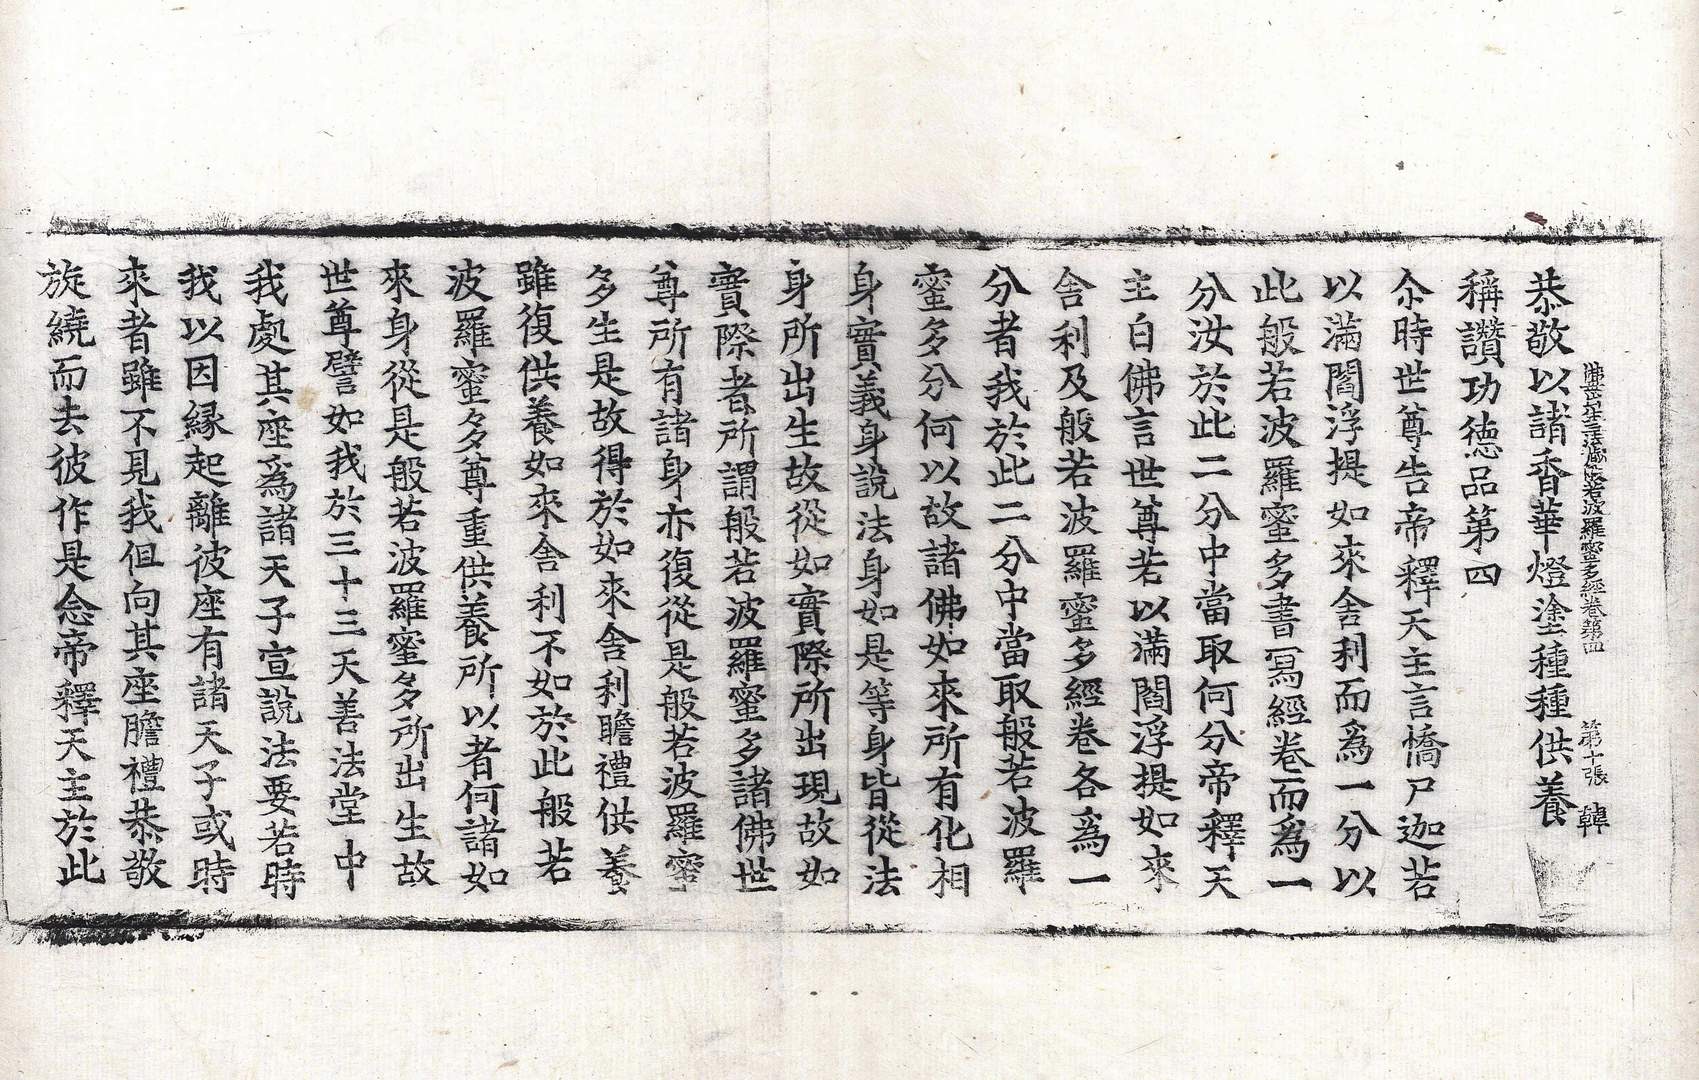 佛母出生三法藏般若波羅蜜多經卷第四 第十張 韓
恭敬以諸香華燈塗種種供養
稱讚功德品第四
尒時世尊告帝釋天主言憍尸迦若
以滿閻浮提如來舍利而爲一分以
此般若波羅蜜多書寫經卷而爲一
分汝於此二分中當取何分帝釋天
主白佛言世尊若以滿閻浮提如來
舍利及般若波羅蜜多經卷各爲一
分者我於此二分中當取般若波羅
蜜多分何以故諸佛如來所有化相
身實義身說法身如是等身皆從法
身所出生故從如實際所出現故如
實際者所謂般若波羅蜜多諸佛世
尊所有諸身亦復從是般若波羅蜜
多生是故得於如來舍利瞻禮供養
雖復供養如來舍利不如於此般若
波羅蜜多尊重供養所以者何諸如
來身從是般若波羅蜜多所出生故
世尊譬如我於三十三天善法堂中
我處其座爲諸天子宣說法要若時
我以因緣起離彼座有諸天子或時
來者雖不見我但向其座瞻禮恭敬
旋繞而去彼作是念帝釋天主於此